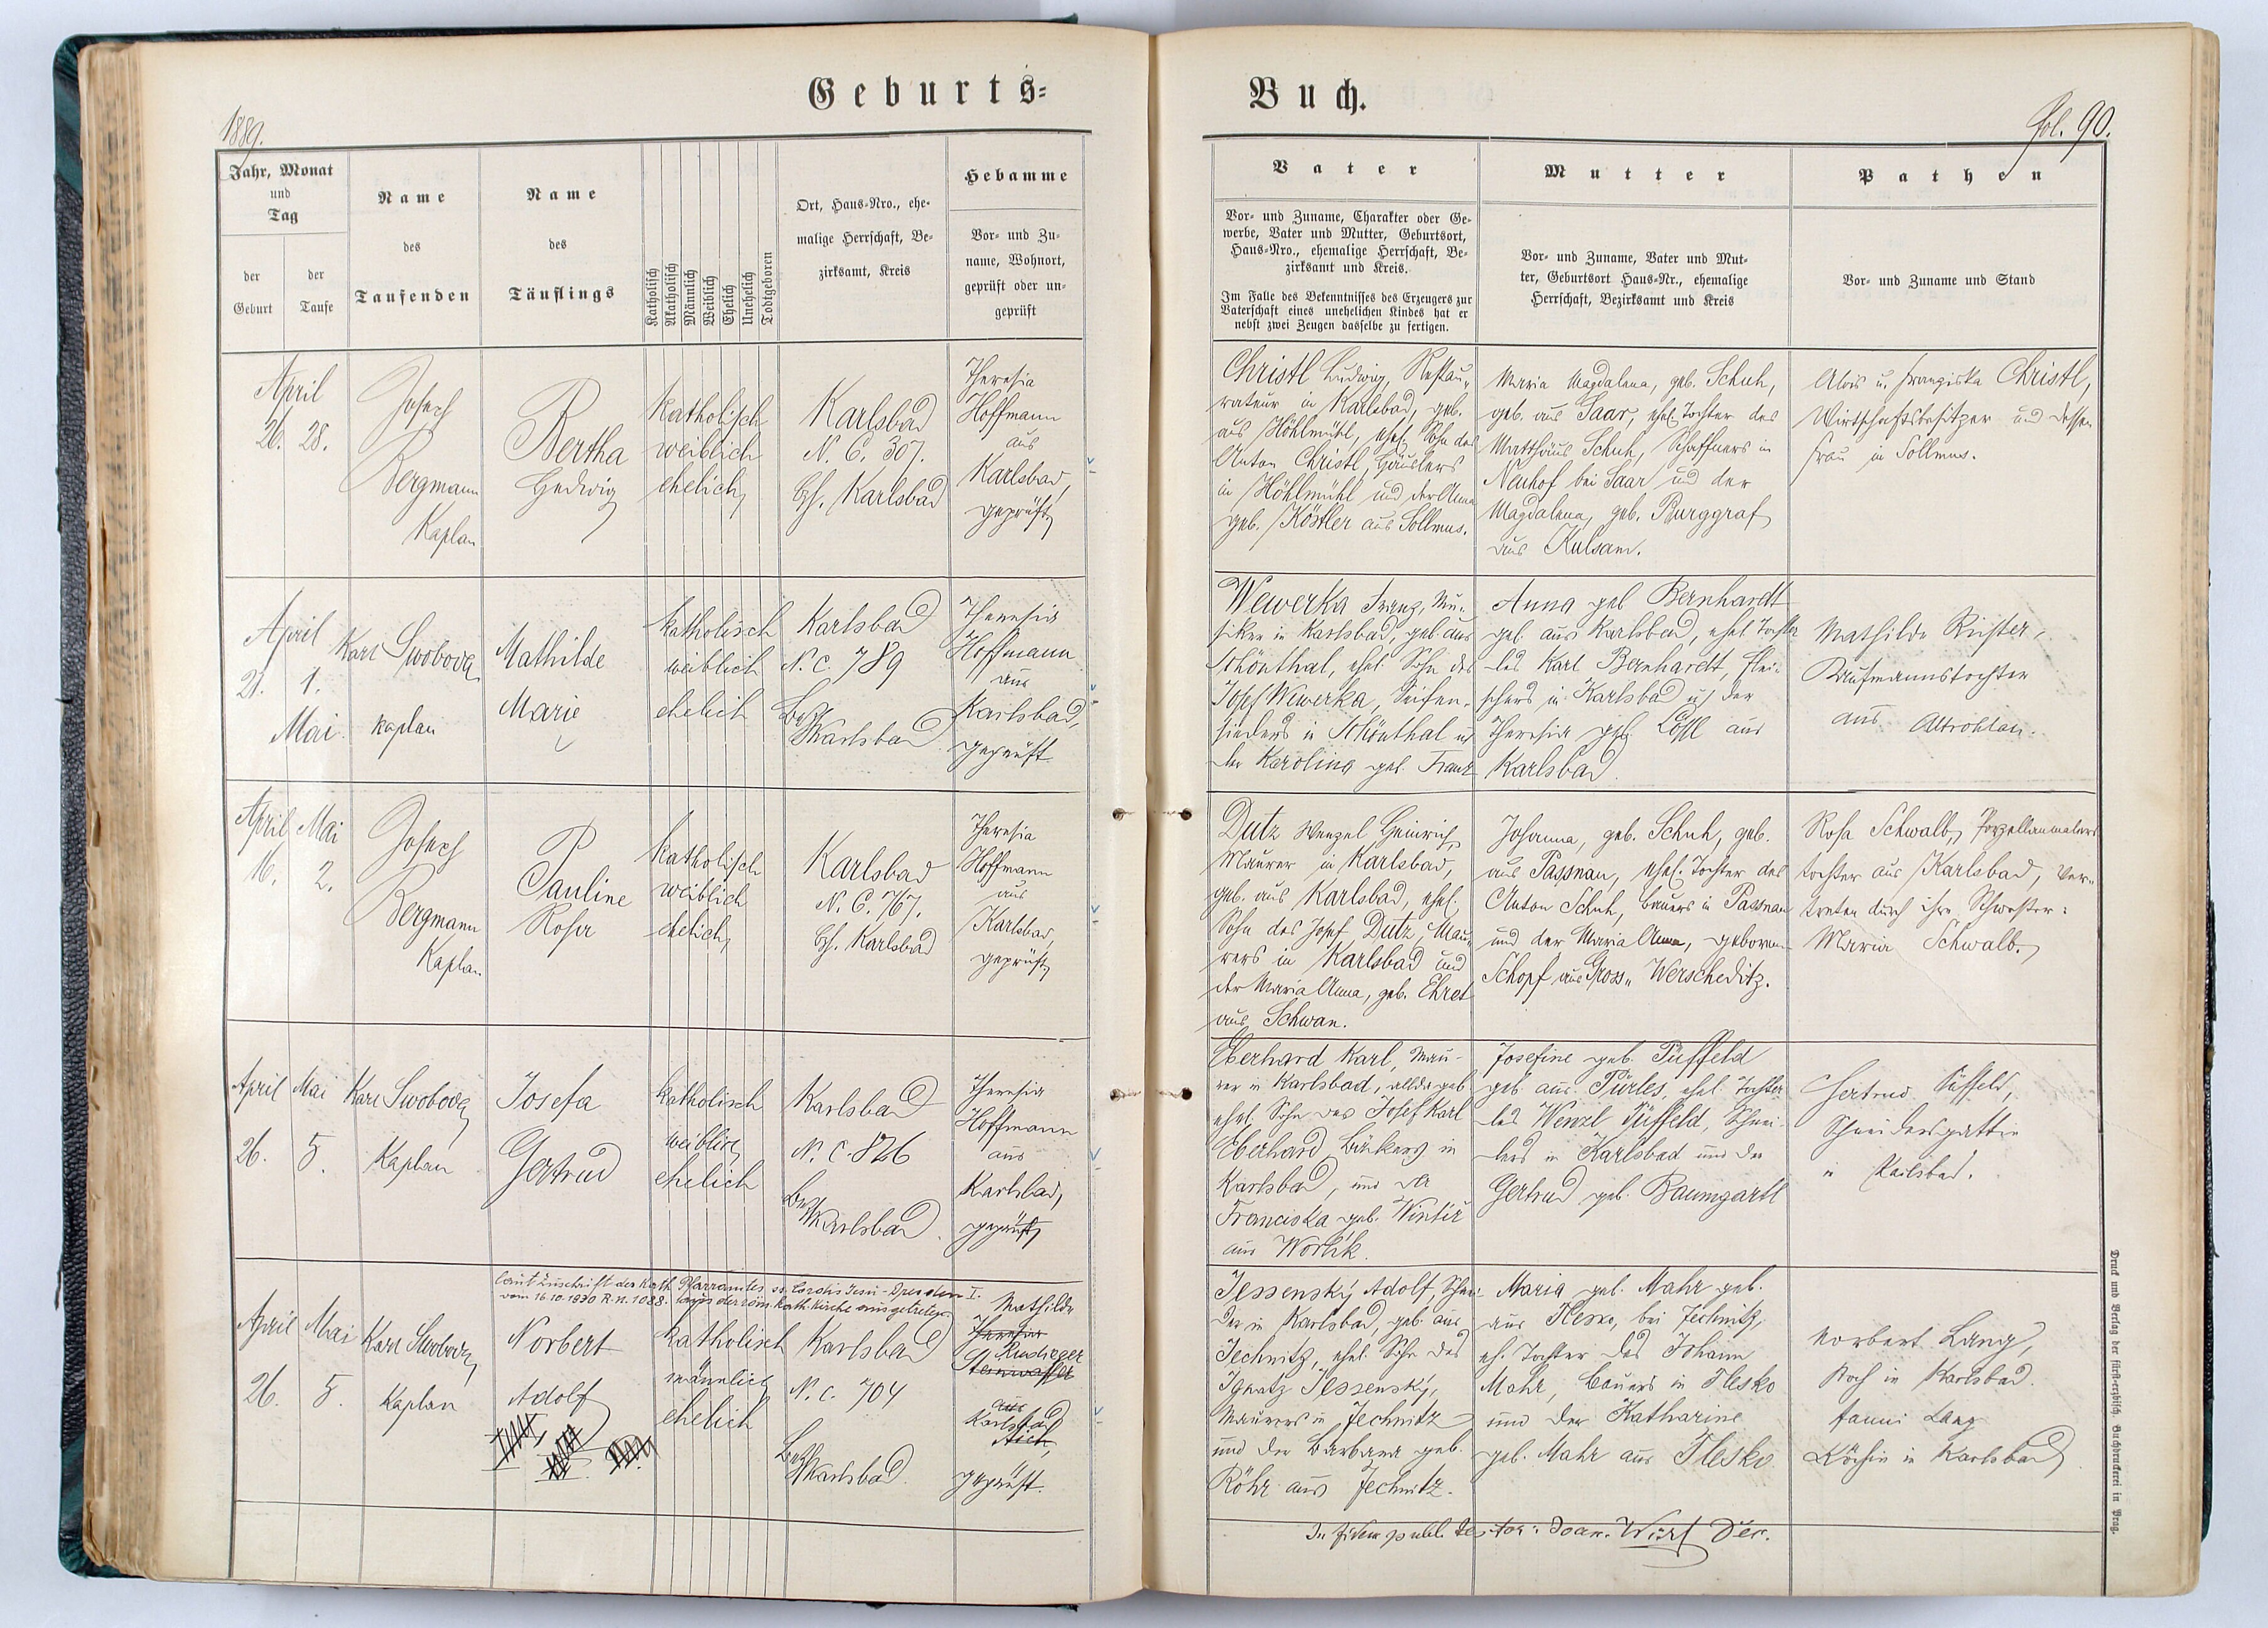 Geburts=
Buch.
1889.
fol. 90.
Jahr, Monat
und
Tag
der
Geburt
der
Taufe
Name
des
Taufenden
Name
des
Täuflings
Katholisch
Akatholisch
Männlich
Weiblich
Ehelich
Unehelich
Todtgeboren
Ort, Haus=Nro., ehe=
malige Herrschaft, Be=
zirksamt, Kreis
Hebamme
Vor= und Zu=
name, Wohnort,
geprüft oder un=
geprüft
Vater
Vor= und Zuname, Charakter oder Ge=
werbe, Vater und Mutter, Geburtsort,
Haus=Nro., ehemalige Herrschaft, Be=
zirksamt und Kreis.
Im Falle des Bekenntnisses des Erzeugers zur
Vaterschaft eines unehelichen Kindes hat er
nebst zwei Zeugen dasselbe zu fertigen.
Mutter
Vor= und Zuname, Vater und Mut=
ter, Geburtsort Haus=Nr., ehemalige
Herrschaft, Bezirksamt und Kreis
Pathen
Vor= und Zuname und Stand
April
26. 28.
Josef
Bergmann
Kaplan
Bertha
Hedwig
katholisch
weiblich
ehelich
Karlsbad
N. C. 307.
Bh. Karlsbad
Theresia
Hoffmann
aus
Karlsbad,
geprüft
Christl Ludwig, Restau=
rateur in Karlsbad, geb.
aus Höhlmühl, ehel. Sohn des
Anton Christl, Häuslers
in Höhlmühl und der Anna
geb. Köstler aus Sollmus.
Maria Magdalena, geb. Schuh,
geb. aus Saar, ehel. Tochter des
Matthäus Schuh, Schaffners in
Neuhof bei Saar und der
Magdalena, geb. Burggraf
aus Kulsam.
Alois u. Franziska Christl,
Wirtschaftsbesitzer und dessen
Frau in Sollmus.
April
21. 1.
Mai
Karl Swoboda
Kaplan
Mathilde
Marie
katholisch
weiblich
ehelich
Karlsbad
N. C. 789
Bez
Karlsbad
Theresia
Hoffmann
aus
Karlsbad,
geprüft
Wewerka Franz, Mu=
siker in Karlsbad, geb. aus
Schönthal, ehel. Sohn des
Josef Wewerka, Seifen=
sieders in Schönthal u
der Karolina geb. Franz
Anna geb Bernhardt
geb. aus Karlsbad, ehel Tochter
des Karl Bernhardt, Flei=
schers in Karlsbad u der
Theresia geb. Lössl aus
Karlsbad
Mathilde Richter,
Kaufmannstochter
aus Altrohlau.
April Mai
16. 2.
Josef
Bergmann
Kaplan
Pauline
Rosa
katholisch
weiblich
ehelich
Karlsbad
N. C. 767.
Bh. Karlsbad
Theresia
Hoffmann
aus
Karlsbad,
geprüft
Dutz Wenzel Heinrich,
Maurer in Karlsbad,
geb. aus Karlsbad, ehel.
Sohn des Josef Dutz, Mau=
rers in Karlsbad und
der Maria Anna, geb. Ehret
aus Schwan.
Johanna, geb. Schuh, geb.
aus Passnau, ehel. Tochter des
Anton Schuh, Bauers in Passnau
und der Maria Anna, geborenen
Schopf aus Gross= Werscheditz.
Rosa Schwalb, Porzellanmalers
tochter aus Karlsbad, ver=
treten durch ihre Schwester:
Maria Schwalb.
April Mai
26. 5.
Karl Swoboda
Kaplan
Josefa
Gertrud
katholisch
weiblich
ehelich
Karlsbad
N. C. 826
Bez
Karlsbad
Theresia
Hoffmann
aus
Karlsbad,
geprüft
Eberhard Karl, Mau=
rer in Karlsbad, allda geb
ehel. Sohn des Josef Karl
Eberhard, Bäckers in
Karlsbad, und der
Franciska geb. Winter
aus Worlik.
Josefine geb. Püffeld
geb. aus Pürles, ehel. Tochter
des Wenzl Püffeld, Schnei=
ders in Karlsbad und der
Gertrud geb. Baumgartl
Gertrud Püffeld,
Schneidersgattin
in Karlsbad.
Laut Zuschrift des Kath. Pfarramtes ss. Cordis Jesu-Dresden I.
vom 16.10.1930 R.n. 1088. aus der röm. kath. Kirche ausgetreten.
April Mai
26. 5.
Karl Swoboda
Kaplan
Norbert
Adolf
katholisch
männlich
ehelich
Karlsbad
N. C. 704
Bez
Karlsbad.
Mathilde
Theresia
aus
Karlsbad
Aich,
geprüft.
Jessenský Adolf, Schnei=
der in Karlsbad, geb. aus
Jechnitz, ehel. Sohn des
Ignatz Jessenský,
Maurers in Jechnitz
und der Barbara geb.
Röhr aus Jechnitz.
Maria geb. Mahr geb.
aus Flesko, bei Jechnitz,
eh. Tochter des Johann
Mahr, Bauers in Flesko
und der Katharine
geb. Mahr aus Flesko
Norbert Lang,
Koch in Karlsbad.
Fanni Lang
Köchin in Karlsbad
In fidem publ. testor: Joan. Würl Dec.
Druck und Verlag der fürst=erzbisch. Buchdruckerei in Prag.